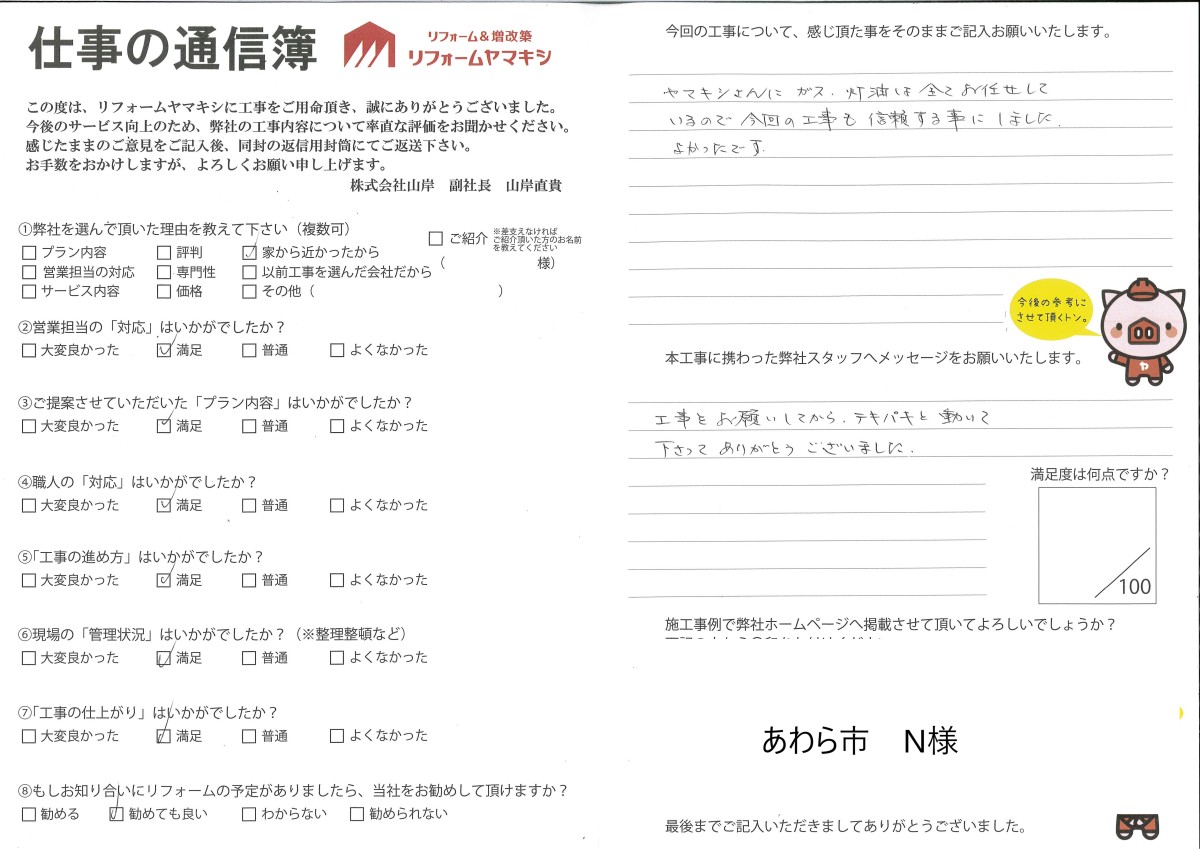 仕事の通信簿
リフォーム&増改築
リフォームヤマキシ
この度は、リフォームヤマキシに工事をご用命頂き、誠にありがとうございました。
今後のサービス向上のため、弊社の工事内容について率直な評価をお聞かせください。
感じたままのご意見をご記入後、同封の返信用封筒にてご返送下さい。
お手数をおかけしますが、よろしくお願い申し上げます。
株式会社山岸 副社長 山岸直貴
①弊社を選んで頂いた理由を教えて下さい（複数可）
プラン内容 評判 家から近かったから
ご紹介 ※差支えなければ
ご紹介頂いた方のお名前
を教えてください
（ 様）
営業担当の対応 専門性 以前工事を選んだ会社だから
サービス内容 価格 その他（ ）
②営業担当の「対応」はいかがでしたか？
大変良かった 満足 普通 よくなかった
③ご提案させていただいた「プラン内容」はいかがでしたか？
大変良かった 満足 普通 よくなかった
④職人の「対応」はいかがでしたか？
大変良かった 満足 普通 よくなかった
⑤「工事の進め方」はいかがでしたか？
大変良かった 満足 普通 よくなかった
⑥現場の「管理状況」はいかがでしたか？（※整理整頓など）
大変良かった 満足 普通 よくなかった
⑦「工事の仕上がり」はいかがでしたか？
大変良かった 満足 普通 よくなかった
⑧もしお知り合いにリフォームの予定がありましたら、当社をお勧めして頂けますか？
勧める 勧めても良い わからない 勧められない
今回の工事について、感じ頂た事をそのままご記入お願いいたします。
ヤマキシさんに ガス、灯油は全てお任せして
いるので今回の工事も信頼する事にしました.
よかったです.
今後の参考に
させて頂くトン。
ヤ
本工事に携わった弊社スタッフへメッセージをお願いいたします。
工事をお願いしてから、テキパキと動いて
下さって ありがとう ございました.
満足度は何点ですか？
100
施工事例で弊社ホームページへ掲載させて頂いてよろしいでしょうか？
あわら市 N様
最後までご記入いただきましてありがとうございました。